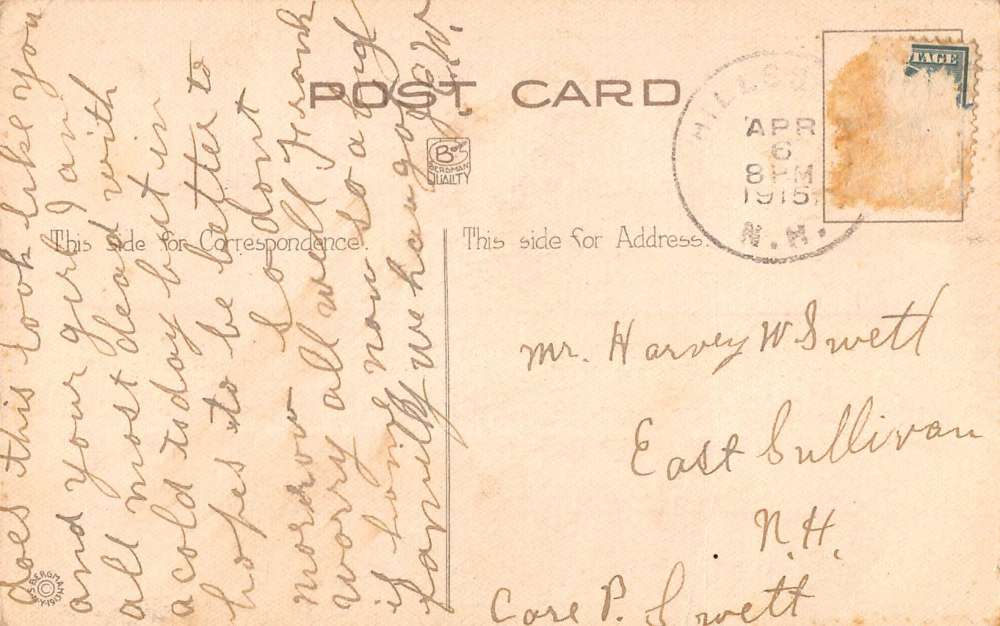 POST CARD
BERGMAN
QUALITY
This side for Correspondence.
This side for Address.
HILLSB
APR
6
8 PM
1915
N.H.
TAGE
does this look like you
and your girl I am
all most dead with
a cold today but in
hopes to be better to
morrow So dont
worry all well Frank
is home now so a
familly we have got
W.
Mr. Harvey W Swett
East Sullivan
N.H.
Care P. Swett
BERGMAN
©